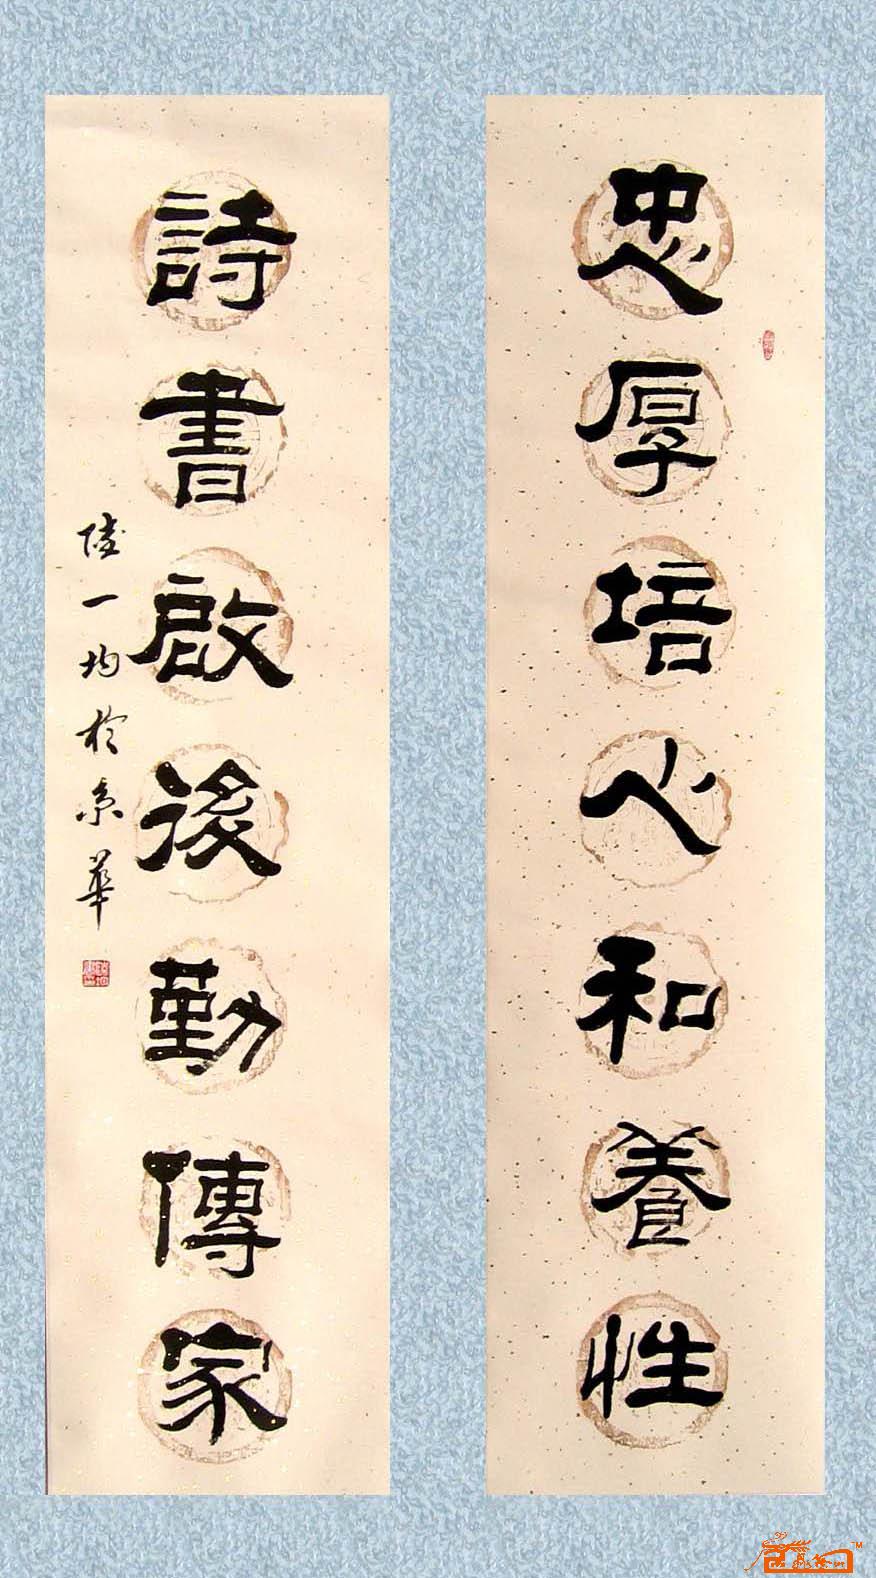 忠厚培心和養性
詩書啟後勤傳家
陸一均於京華